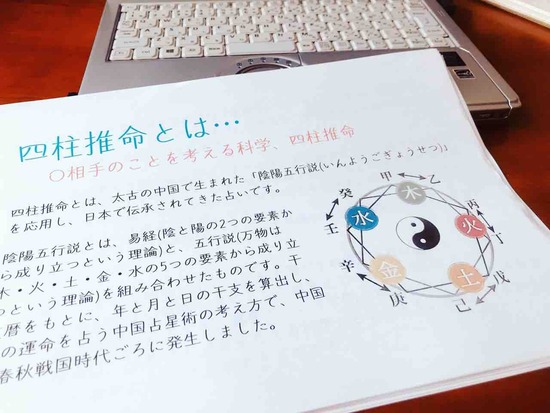 四柱推命とは…
〇相手のことを考える科学、四柱推命
四柱推命とは、太古の中国で生まれた「陰陽五行説(いんようごぎょうせつ)」
を応用し、日本で伝承されてきた占いです。
陰陽五行説とは、易経(陰と陽の2つの要素か
ら成り立つという理論)と、五行説(万物は
木・火・土・金・水の5つの要素から成り立
つという理論)を組み合わせたものです。干
暦をもとに、年と月と日の干支を算出し、
の運命を占う中国占星術の考え方で、中国
春秋戦国時代ごろに発生しました。
甲
乙
木
丙
丁
火
戊
己
土
庚
辛
金
壬
癸
水